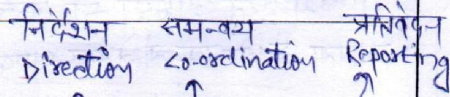 निर्देशन समन्वय प्रतिवेदन
Direction Co-ordination Reporting